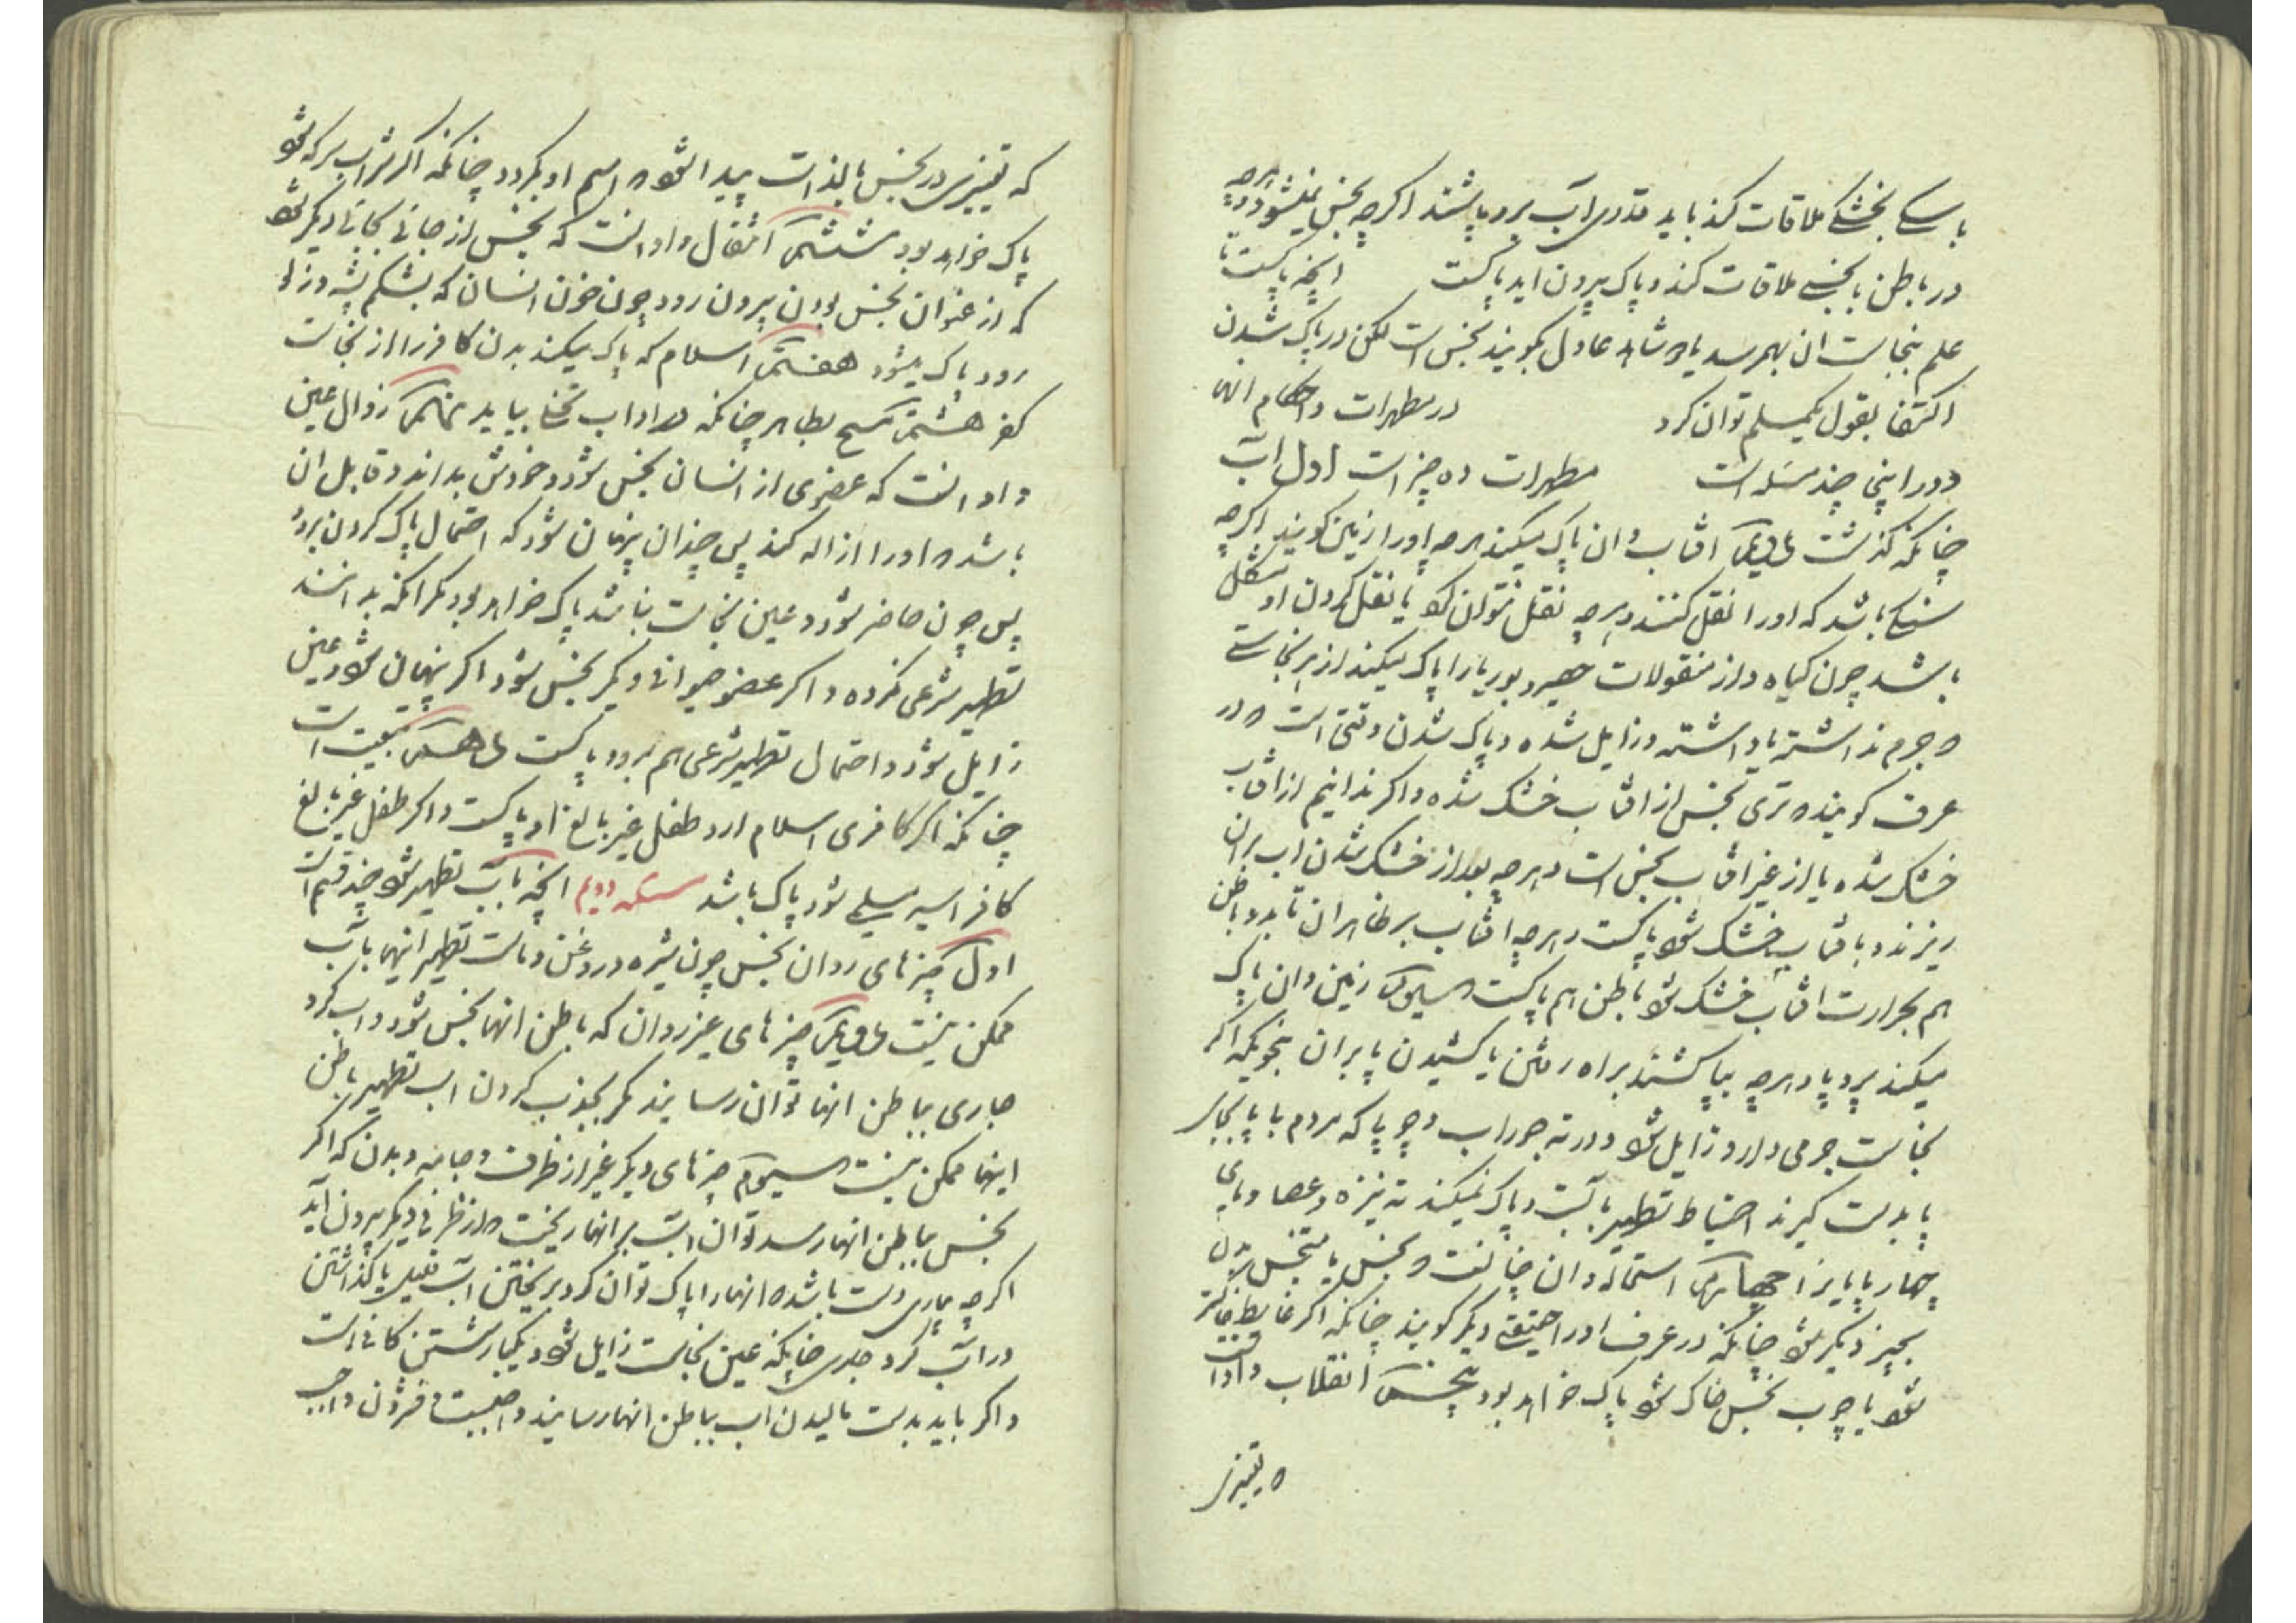 با سگے بخشکے ملاقات کند باید قدری اب برو پاشند اکرچه نجس نمیشود و هرچه
در باطن با نجسے ملاقات کند و پاک بیرون اید پاکست انچه پاکست تا
علم بنجاست ان بهم رسد یا ۲ شاهد عادل بکویند نجس است لکن در پاک شدن
اکتفا بقول یکمسلم توان کرد در مطهرات و احکام انها
و در اینجا چند مسئله است مطهرات ده چیز است اول اب
چنانکه کذشت دویم افتاب و ان پاک میکند هرچه اورا زمین کویند اکرچه
سنکے باشد که اورا نقل کنند و هرچه نقل نتوان کرد یا نقل کردن او مشکل
باشد چون کیاه و از منقولات حصیر و بوریا را پاک میکند از هر نجاستے
که جرم نداشته یا داشته و زایل شده و پاک شدن وقتی است که در
عرف کویند که تری نجس از افتاب خشک شده و اکر ندانیم از افتاب
خشک شده یا از غیر افتاب نجس است و هرچه بعد از خشک شدن اب بران
ریزند و با فتاب خشک شود پاکست و هرچه افتاب بر ظاهر ان تابد و باطن
هم بحرارت افتاب خشک شود باطن هم پاکست سیوم زمین و ان پاک
میکند پرو پا و هرچه بپا کشند براه رفتن یا کشیدن پا بران بنحویکه اکر
نجاست جرمی دارد زایل شود و در ته جوراب و چوپا که مردم با پا بجای
پا بدست کیرند احتیاط تطهیر بابست و پاک نمیکند ته نیزه و عصا و پای
چهارپایانرا چهارم استحاله و ان چنانست که نجس یا متنجس بدل
بچیز دیکر شود چنانکه در عرف اورا حقیقتے دیکر کویند چنانکه اکر غایط خاکستر
شود یا چوب نجس خاک شود پاک خواهد بود پنجم انقلاب و او انست
که تغییری
که تغییری در نجس بالذات پیدا شود که اسم او بکردد چنانکه اکر شراب سرکه شود
پاک خواهد بود ششم انتقال و او انست که نجس از جائی بجائی دیکر شود
که از عنوان نجس بودن بیرون رود چون خون انسان که بشکم پشه و زلو
رود پاک میشود هفتم اسلام که پاک میکند بدن کافر را از نجاست
کفر هشتم مسح بطاهر چنانکه در اداب تخلی بیاید نهم زوال عین
و او انست که عضوی از انسان نجس شود و خودش بداند و قابل ان
باشد که اورا ازاله کند پس چندان پنهان شود که احتمال پاک کردن برود
پس چون حاضر شود و عین نجاست نباشد پاک خواهد بود مکر انکه بدانند
تطهیر شرعی نکرده و اکر عضو حیوانی دیکر نجس شود اکر پنهان شود و عین
زایل شود و احتمال تطهیر شرعی هم برود پاکست دهم تبعیت است
چنانکه اکر کافری اسلام ارد طفل غیر بالغ او پاکست و اکر طفل غیر بالغ
کافر اسیر مسلمے شود پاک باشد مسئله دویم انچه باب تطهیر شود چند قسم است
اول چیزهای روان نجس چون شیره و روغن و ماست تطهیر اینها باب
ممکن نیست دویم چیزهای غیر روان که باطن انها نجس شود و اب کر و
جاری بباطن انها توان رسانید مکر بجذب کردن اب تطهیر باطن
اینها ممکن نیست سیوم چیزهای دیکر غیر از ظرف و جامه و بدن که اکر
نجس بباطن انها رسد توان اب بر انها ریخت که از طرفی دیکر بیرون اید
اکرچه بیاری دست باشد که انها را پاک توان کرد بریختن اب قلیل یا کذاشتن
دراب کر و جاری چنانکه عین نجاست زایل شود و یکبار شستن کافی است
و اکر باید بدست مالیدن اب بباطن انها رسانید واجبست و فشردن واجب